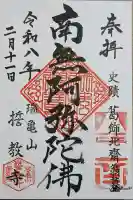 奉拝
史蹟 葛飾北斎
南無阿弥陀佛
亀山
誓教寺
令和八年
二月十一日